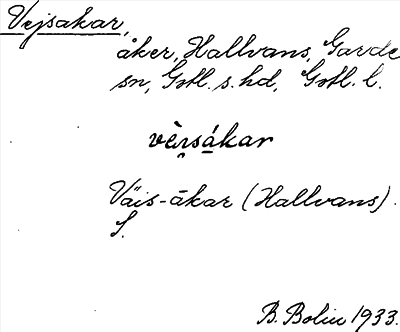 Vejsakar,
åker, Hallvans, Garde
sn, Gotl. s. hd, Gotl. l.
vèrsákar
Väis-åkar (Hallvans).
S.
B. Bolin 1933.